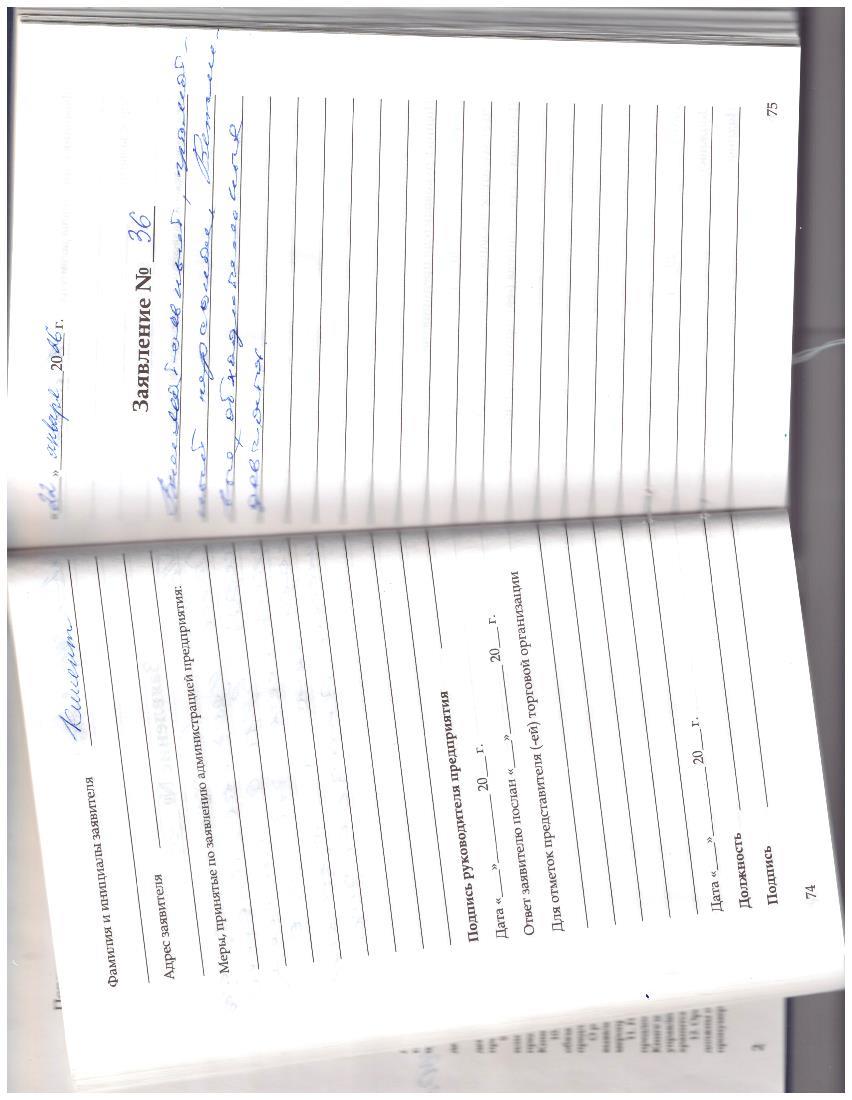 Фамилия и инициалы заявителя Клиент
Адрес заявителя
Меры, принятые по заявлению администрацией предприятия:
Подпись руководителя предприятия
Дата «___»_________ 20___ г.
Ответ заявителю послан «___»_________ 20___ г.
Для отметок представителя (-ей) торговой организации
Дата «___»_________ 20___ г.
Должность
Подпись
74
«22» января 2026 г.
Заявление № 36
грамот-
ный персонал, Вежли-
обходительные
75
2